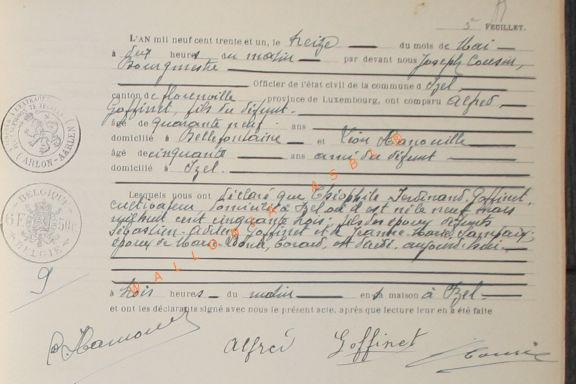 5e FEUILLET.
L'AN mil neuf cent trente et un, le treize du mois de Mai
à dix heures du matin par devant nous Joseph
Bourgmestre
Officier de l'état civil de la commune d'Izel
canton de Florenville, province de Luxembourg, ont comparu Alfred
Goffinet, fils du défunt
âgé de quarante neuf ans
domicilié à Bellefontaine et Léon Hanouille
âgé de cinquante ans ami du défunt
domicilié à Izel
Lesquels nous ont déclaré que Théophile Ferdinand Goffinet,
cultivateur domicilié à Izel où il est né le neuf mars
mil huit cent cinquante trois, fils des époux défunts
Sébastien Goffinet et Jeanne Marie
époux de Marie est décédé aujourd'hui
à trois heures du matin en sa maison à Izel
et ont les déclarants signé avec nous le présent acte, après que lecture leur en a été faite
Alfred Goffinet
WALLONICA ASBL
ARLON-AARLEN
BELGIQUE
6F
BELGIË
9